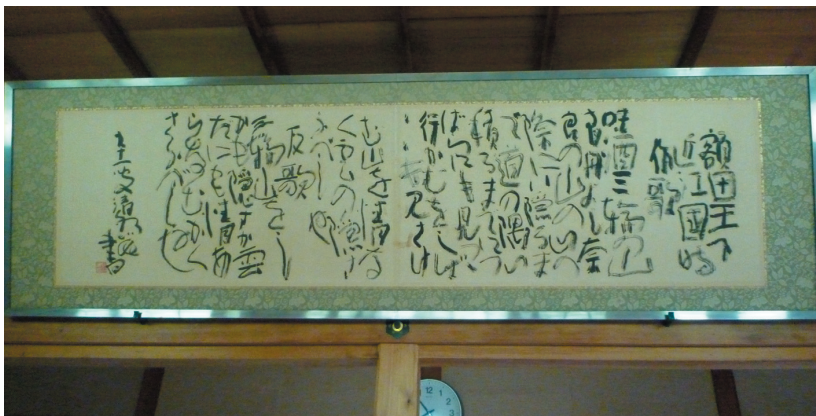 額田王下
近江國時
作歌
味酒三輪の山
青丹よし奈
良の山の山の
際にい隠るま
で道の隈い
積るまでにつ
ばらにも見つつ
行かむをしば
しばも見さけ
む山を情な
く雲の隠さ
ふべしや
反歌
三輪山をし
かも隠すか雲
だにも情あ
らなむかく
さふべしや
書
12
1
2
3